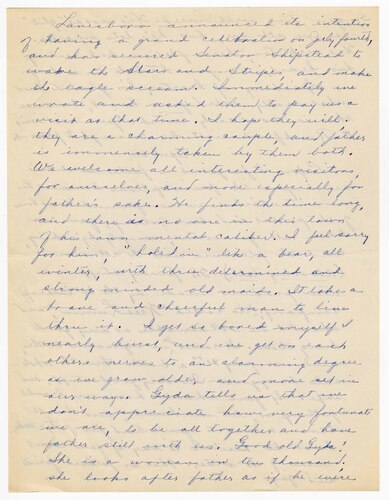 Lanesboro announced its intention
of having a grand celebration on July fourth,
and has secured Senator Shipstead to
wake the Stars and Stripes, and make
the eagle scream. Immediately we
wrote and asked them to pay us a
visit at that time. I hope they will.
they are a charming couple, and father
is immensely taken by them both.
We welcome all interesting visitors,
for ourselves, and more especially for
father's sake. He finds the time long,
and there is no one in this town
of his own mental caliber. I feel sorry
for him, "holed in" like a bear, all
winter, with three determined and
strong minded old maids. It takes a
brave and cheerful man to live
thru it. I get so bored myself I
nearly burst, and we get on each
others nerves to an alarming degree
as we grow older and more set in
our ways. Gyda tells us that we
don't appreciate how very fortunate
we are, to be all together and have
father still with us. Good old Gyda!
She is a woman in ten thousand,
she looks after father as if he were